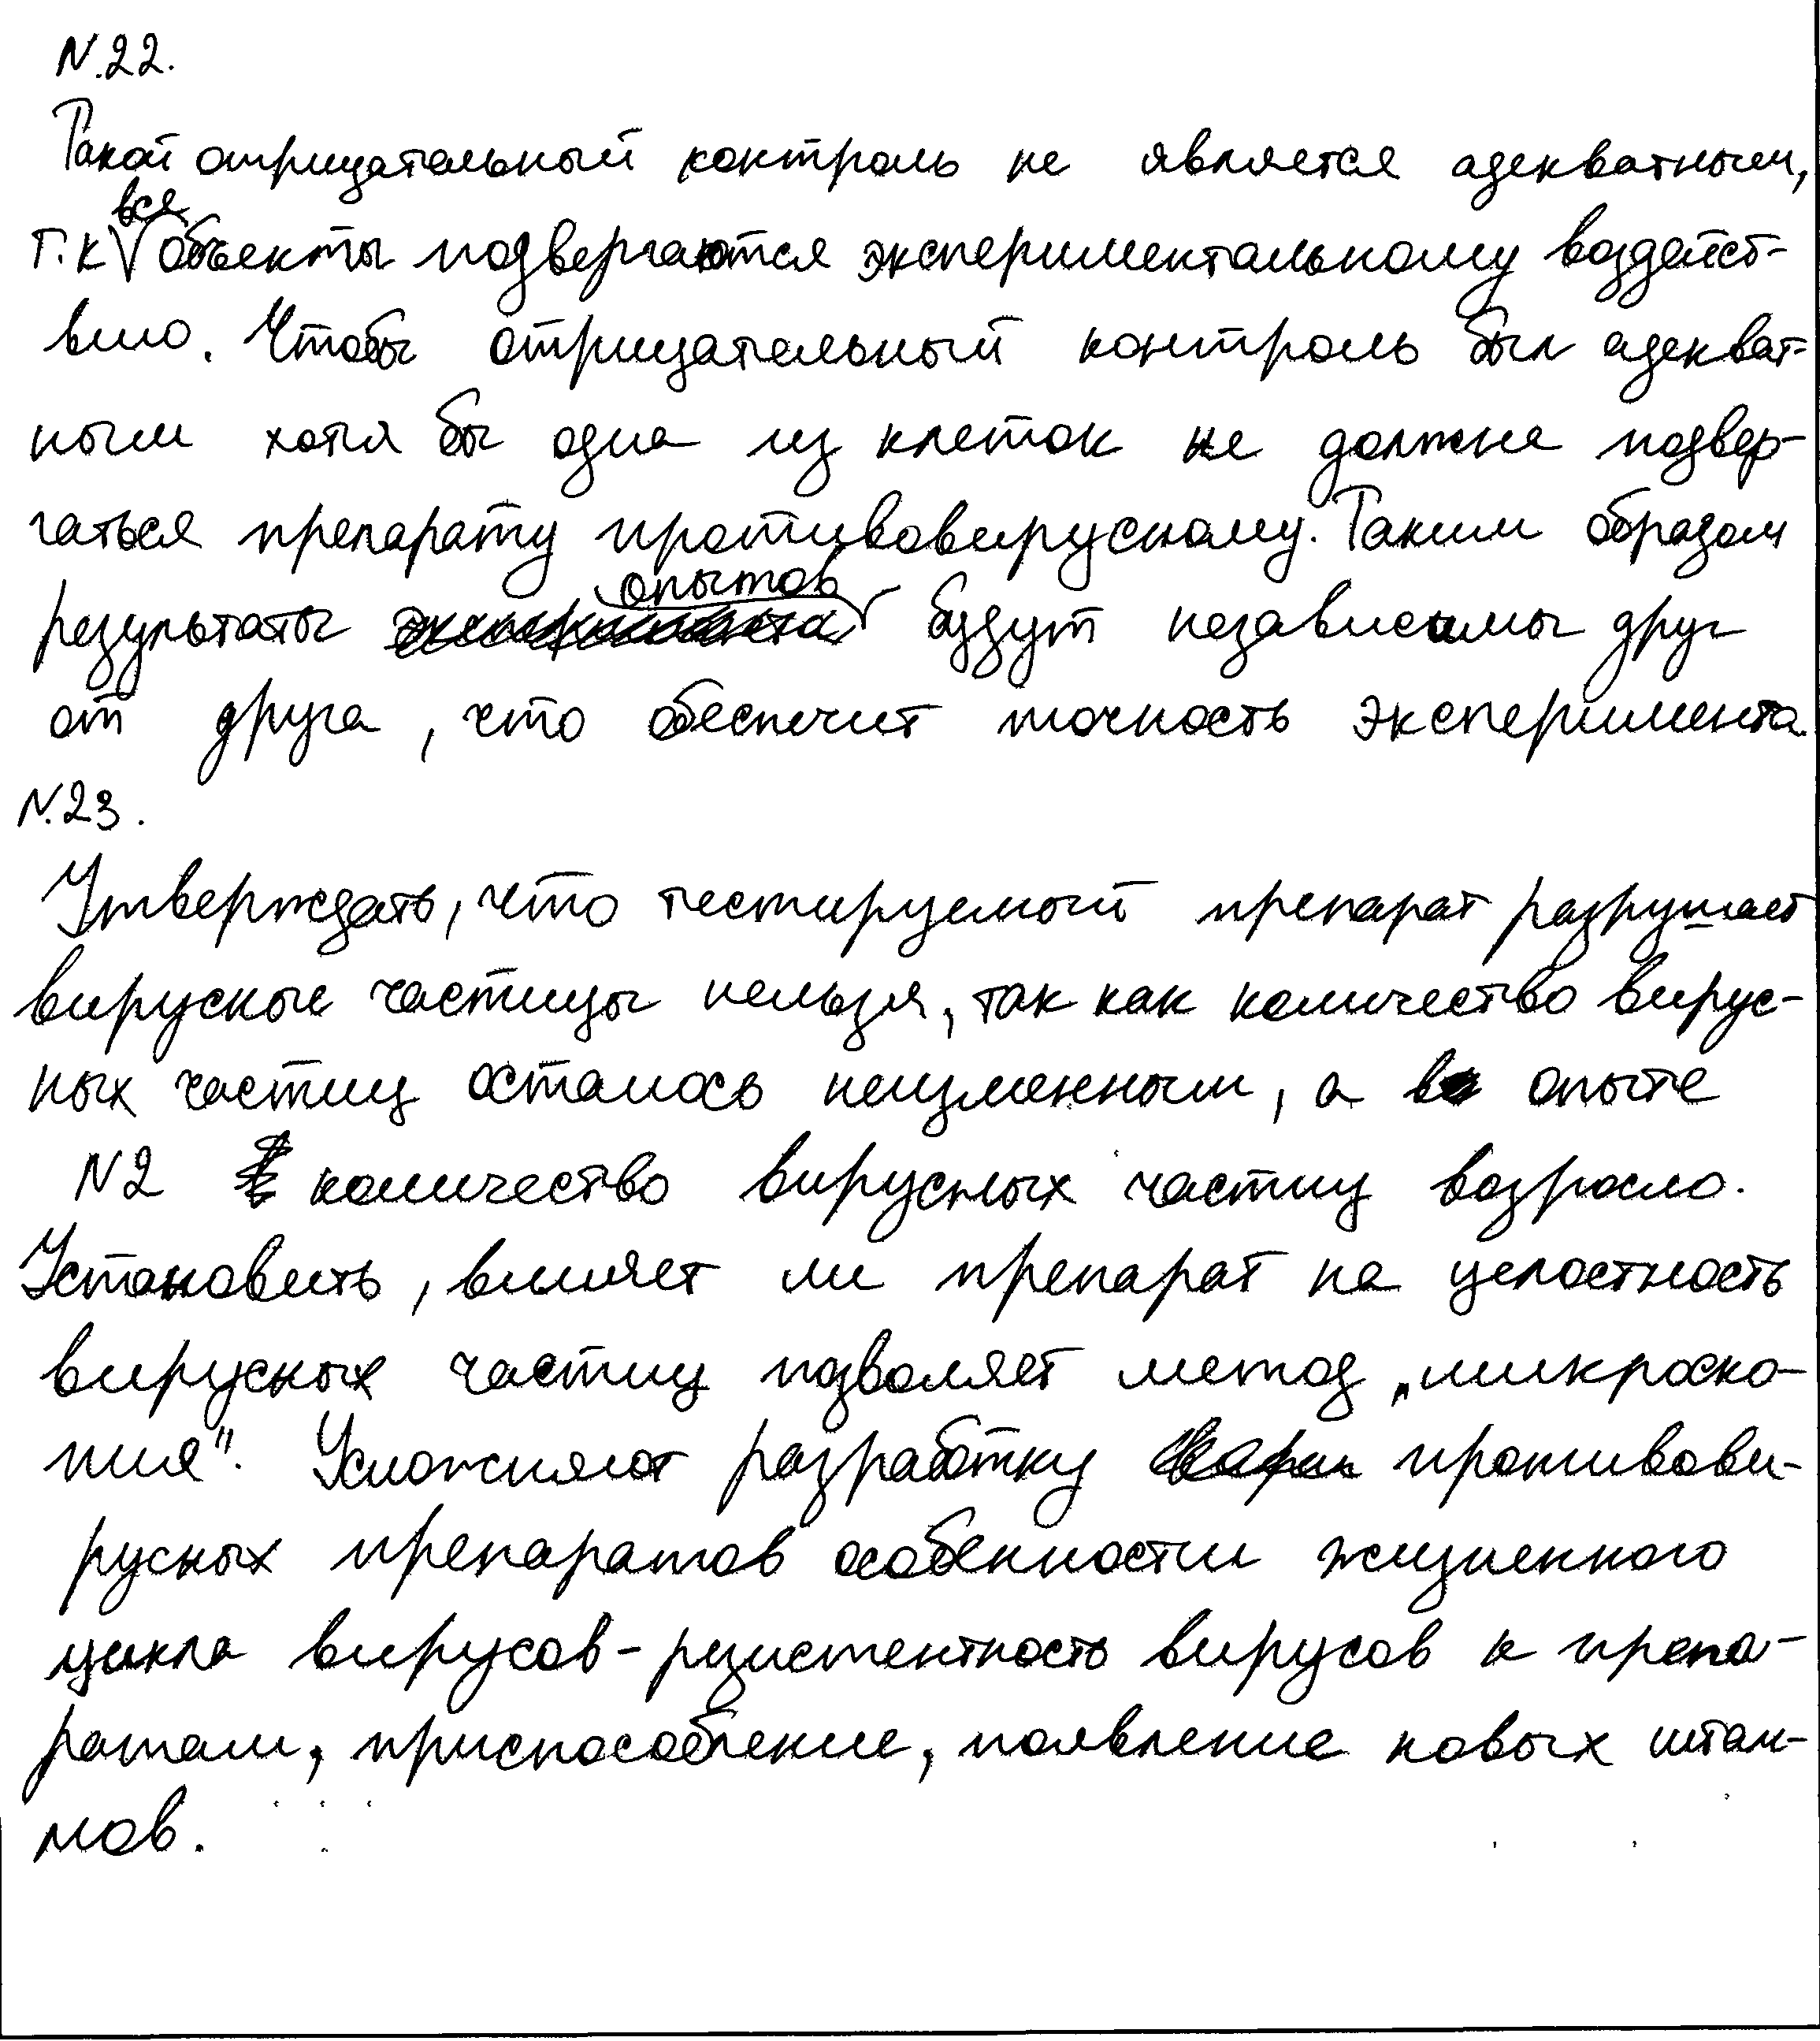 N.22.
Такой отрицательный контроль не является адекватным,
т.к все объекты подвергаются экспериментальному воздейст-
вию. Чтобы отрицательный контроль был адекват-
ным хотя бы одна из клеток не должна подвер-
гаться препарату противовирусному. Таким образом
результаты опытов будут независимы друг
от друга, что обеспечит точность эксперимента.
N.23.
Утверждать, что тестируемый препарат разрушает
вирусные частицы нельзя, так как количество вирус-
ных частиц осталось неизменным, а в опыте
N2 количество вирусных частиц возросло.
Установить, влияет ли препарат на целостность
вирусных частиц позволяет метод „микроско-
пия". Усложняют разработку противови-
русных препаратов особенности жизненного
цикла вирусов - резистентность вирусов к препа-
ратам, приспособление, появление новых штам-
мов.